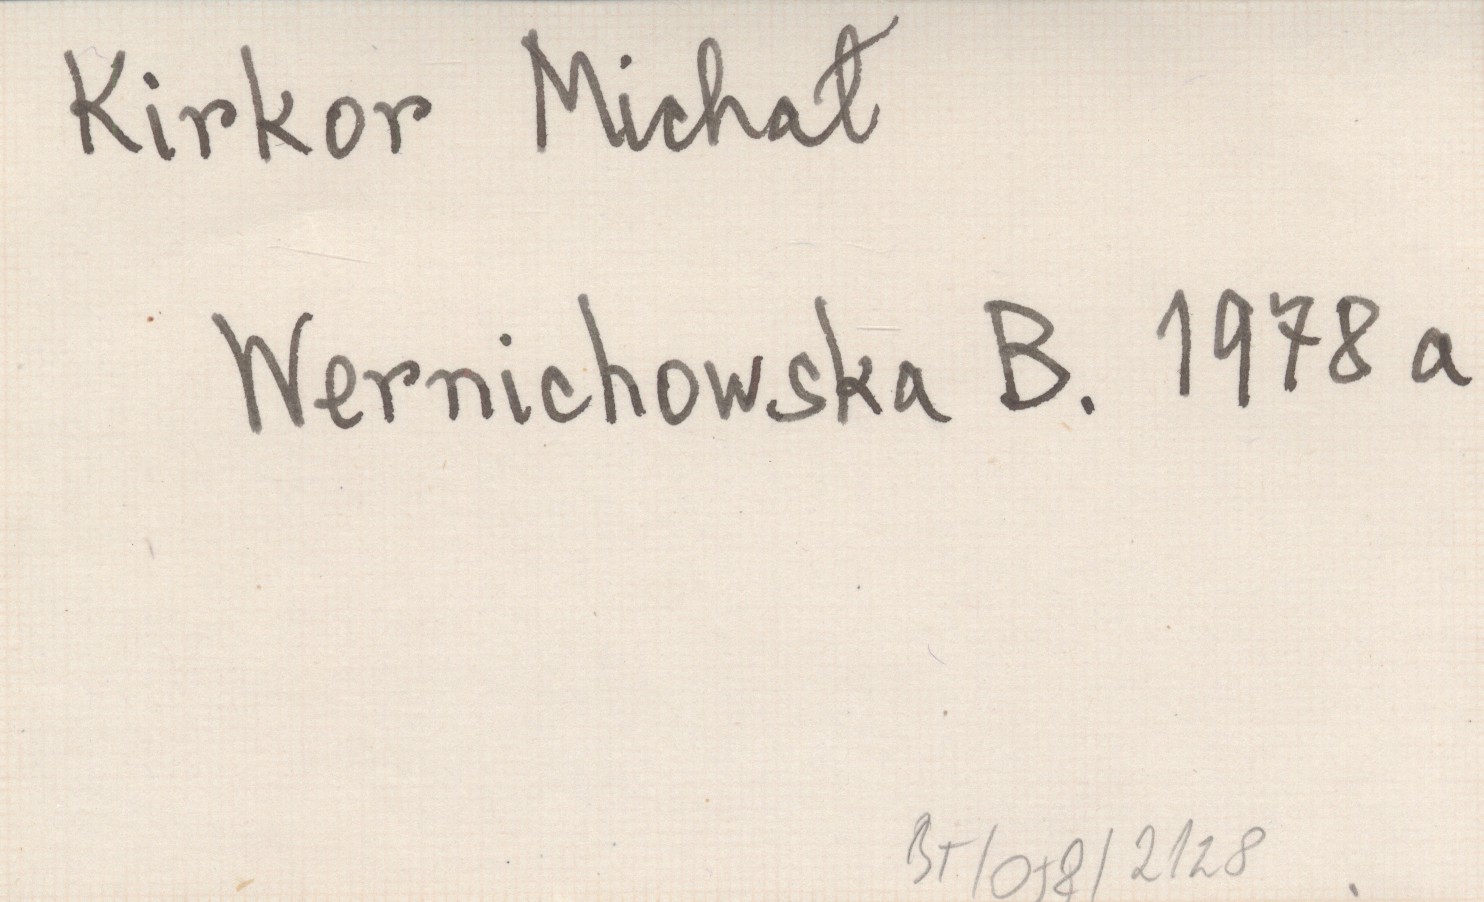 Kirkor Michał
Wernichowska B. 1978 a
BT/OJ8/2128